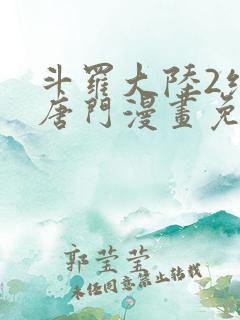 斗羅大陸2
唐門漫畫免
郭莹莹
未经同意禁止转载